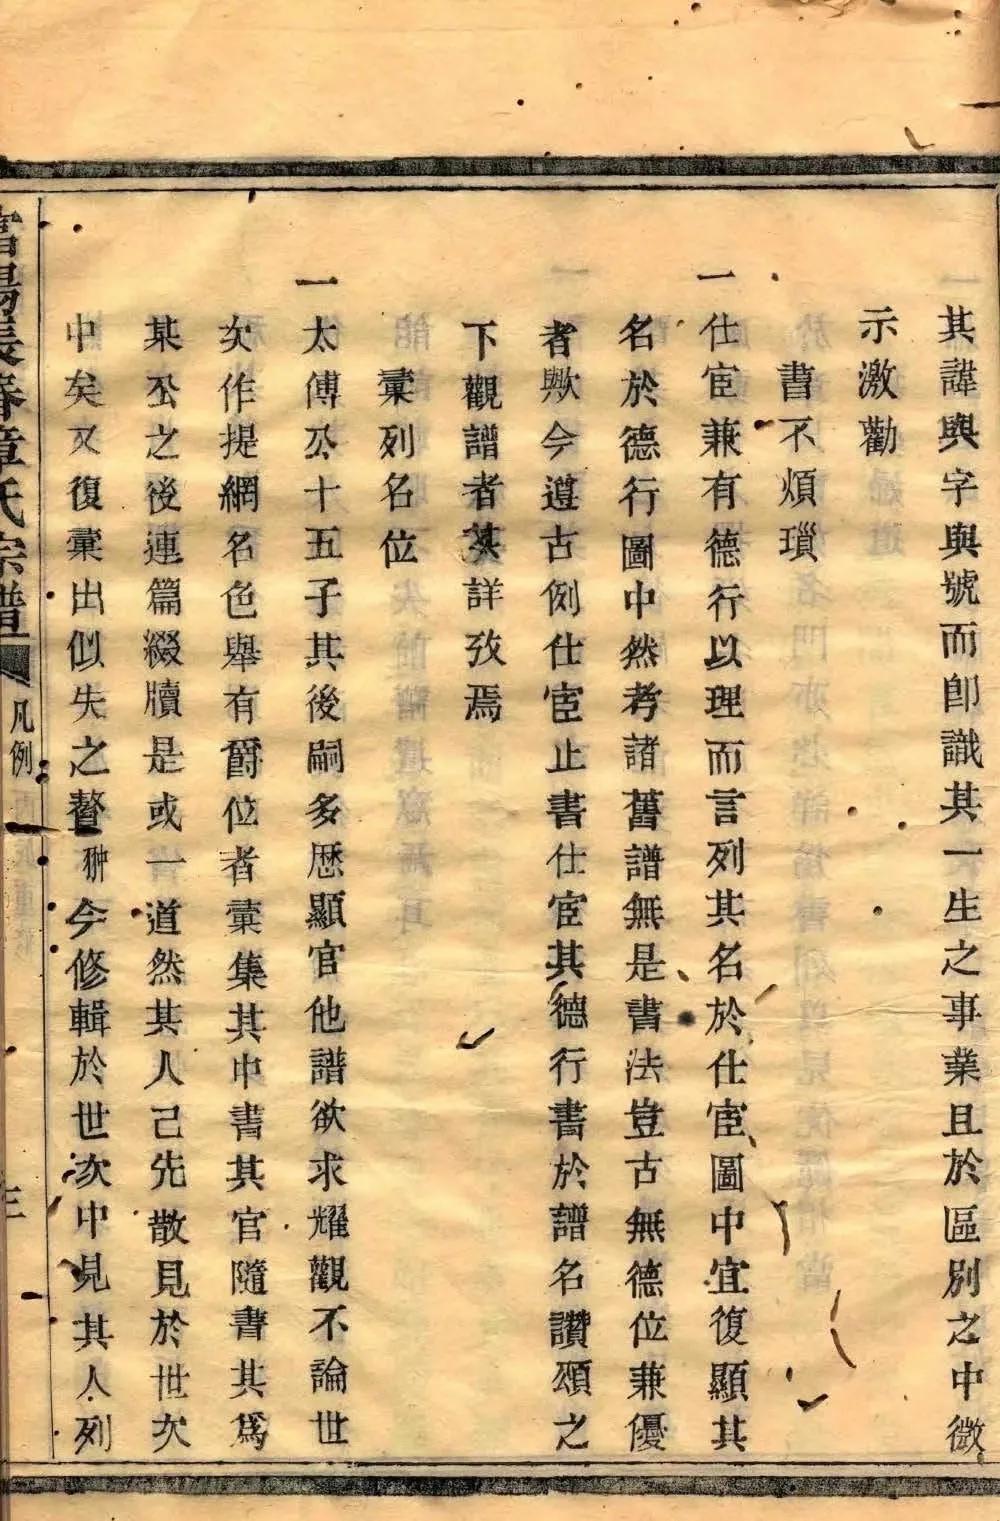 其諱與字與號而卽識其一生之事業且於區別之中微
示激勸
書不煩瑣
一仕宦兼有德行以理而言列其名於仕宦圖中宜復顯其
名於德行圖中然考諸舊譜無是書法豈古無德位兼優
者歟今遵古例仕宦止書仕宦其德行書於譜名讚頌之
下觀譜者其詳攷焉
彙列名位
一太傅公十五子其後嗣多歷顯官他譜欲求耀觀不論世
次作提網名色舉有爵位者彙集其中書其官隨書其爲
某公之後連篇綴牘是或一道然其人己先散見於世次
中矣又復彙出似失之贅 今修輯於世次中見其人列
富陽長春章氏宗譜 凡例 三